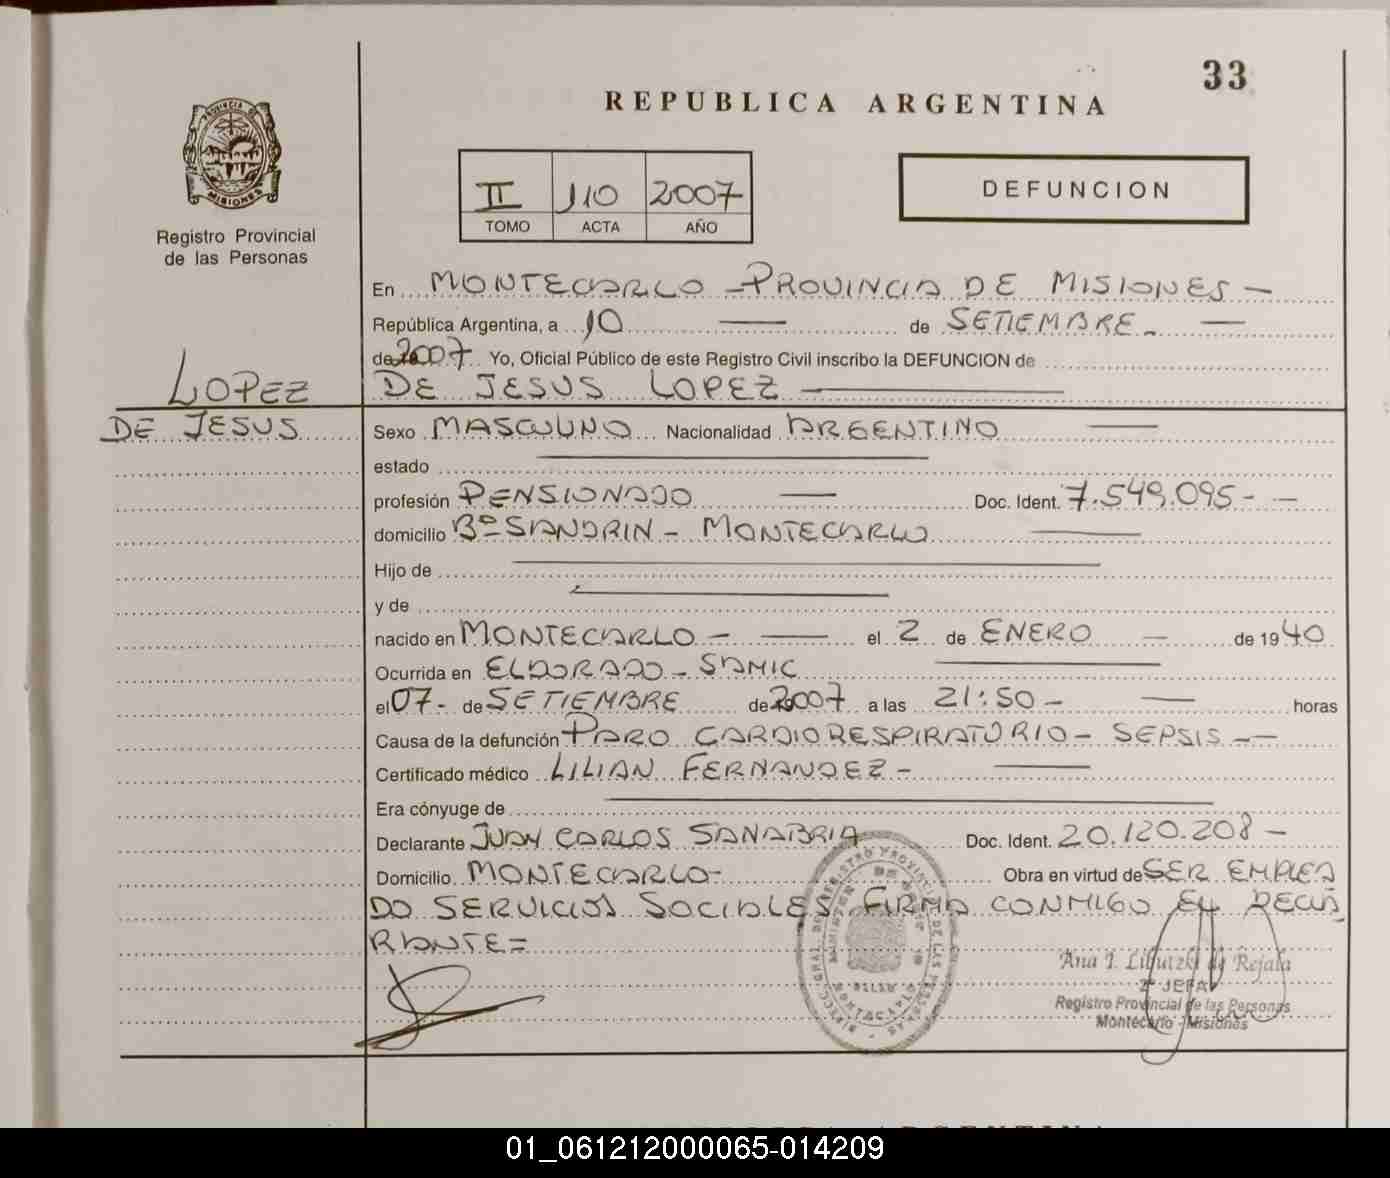 33
REPUBLICA ARGENTINA
PROVINCIA DE
MISIONES
Registro Provincial
de las Personas
II 110 2007
TOMO ACTA AÑO
DEFUNCION
En MONTECARLO - PROVINCIA DE MISIONES -
República Argentina, a 10 — de SETIEMBRE - —
de 2007 Yo, Oficial Público de este Registro Civil inscribo la DEFUNCION de
LOPEZ
DE JESUS
DE JESUS LOPEZ —
Sexo MASCULINO Nacionalidad ARGENTINO —
estado —
profesión PENSIONADO — Doc. Ident. 7.549.095 - —
domicilio Bº SANDRIN - MONTECARLO —
Hijo de —
y de —
nacido en MONTECARLO - — el 2 de ENERO — de 1940
Ocurrida en ELDORADO - SAMIC —
el 07 - de SETIEMBRE de 2007 a las 21:50 - — horas
Causa de la defunción PARO CARDIORESPIRATORIO - SEPSIS - —
Certificado médico LILIAN FERNANDEZ - —
Era cónyuge de —
Declarante JUAN CARLOS SANABRIA Doc. Ident. 20.120.208 -
Domicilio MONTECARLO - Obra en virtud de SER EMPLEA
DO SERVICIOS SOCIALES FIRMA CONMIGO EL DECLA
RANTE =
Ana I. de Rejala
2º JEFA
Registro Provincial de las Personas
Montecarlo - Misiones
01_061212000065-014209